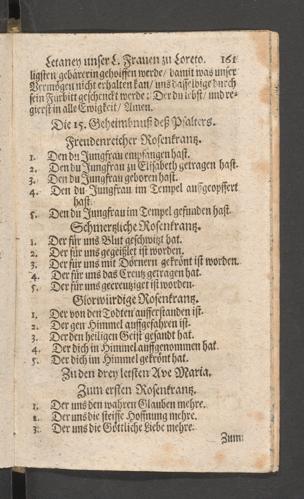 Letaney unser L. Frauen zu Loreto. 161
ligsten gebärerin geholffen werde / damit was unser
Vermögen nicht erhalten kan / uns dasselbige durch
sein Fürbitt geschenckt werde: Der du lebst / und re-
gierst in alle Ewigkeit / Amen.
Die 15. Geheimbnuß deß Psalters.
Freudenreicher Rosenkrantz.
1. Den du Jungfrau empfangen hast.
2. Den du Jungfrau zu Elisabeth getragen hast.
3. Den du Jungfrau geboren hast.
4. Den du Jungfrau im Tempel auffgeopffert
hast.
5. Den du Jungfrau im Tempel gefunden hast.
Schmertzliche Rosenkrantz.
1. Der für uns Blut geschwitzt hat.
2. Der für uns gegeißlet ist worden.
3. Der für uns mit Dörnern gekrönt ist worden.
4. Der für uns das Creutz getragen hat.
5. Der für uns gecreutziget ist worden.
Glorwürdige Rosenkrantz.
1. Der von den Todten aufferstanden ist.
2. Der gen Himmel auffgefahren ist.
3. Der den heiligen Geist gesandt hat.
4. Der dich in Himmel auffgenommen hat.
5. Der dich im Himmel gekrönt hat.
Zu den drey letsten Ave Maria.
Zum ersten Rosenkrantz.
1. Der uns den wahren Glauben mehre.
2. Der uns die steiffe Hoffnung mehre.
3. Der uns die Göttliche Liebe mehre.
Zum